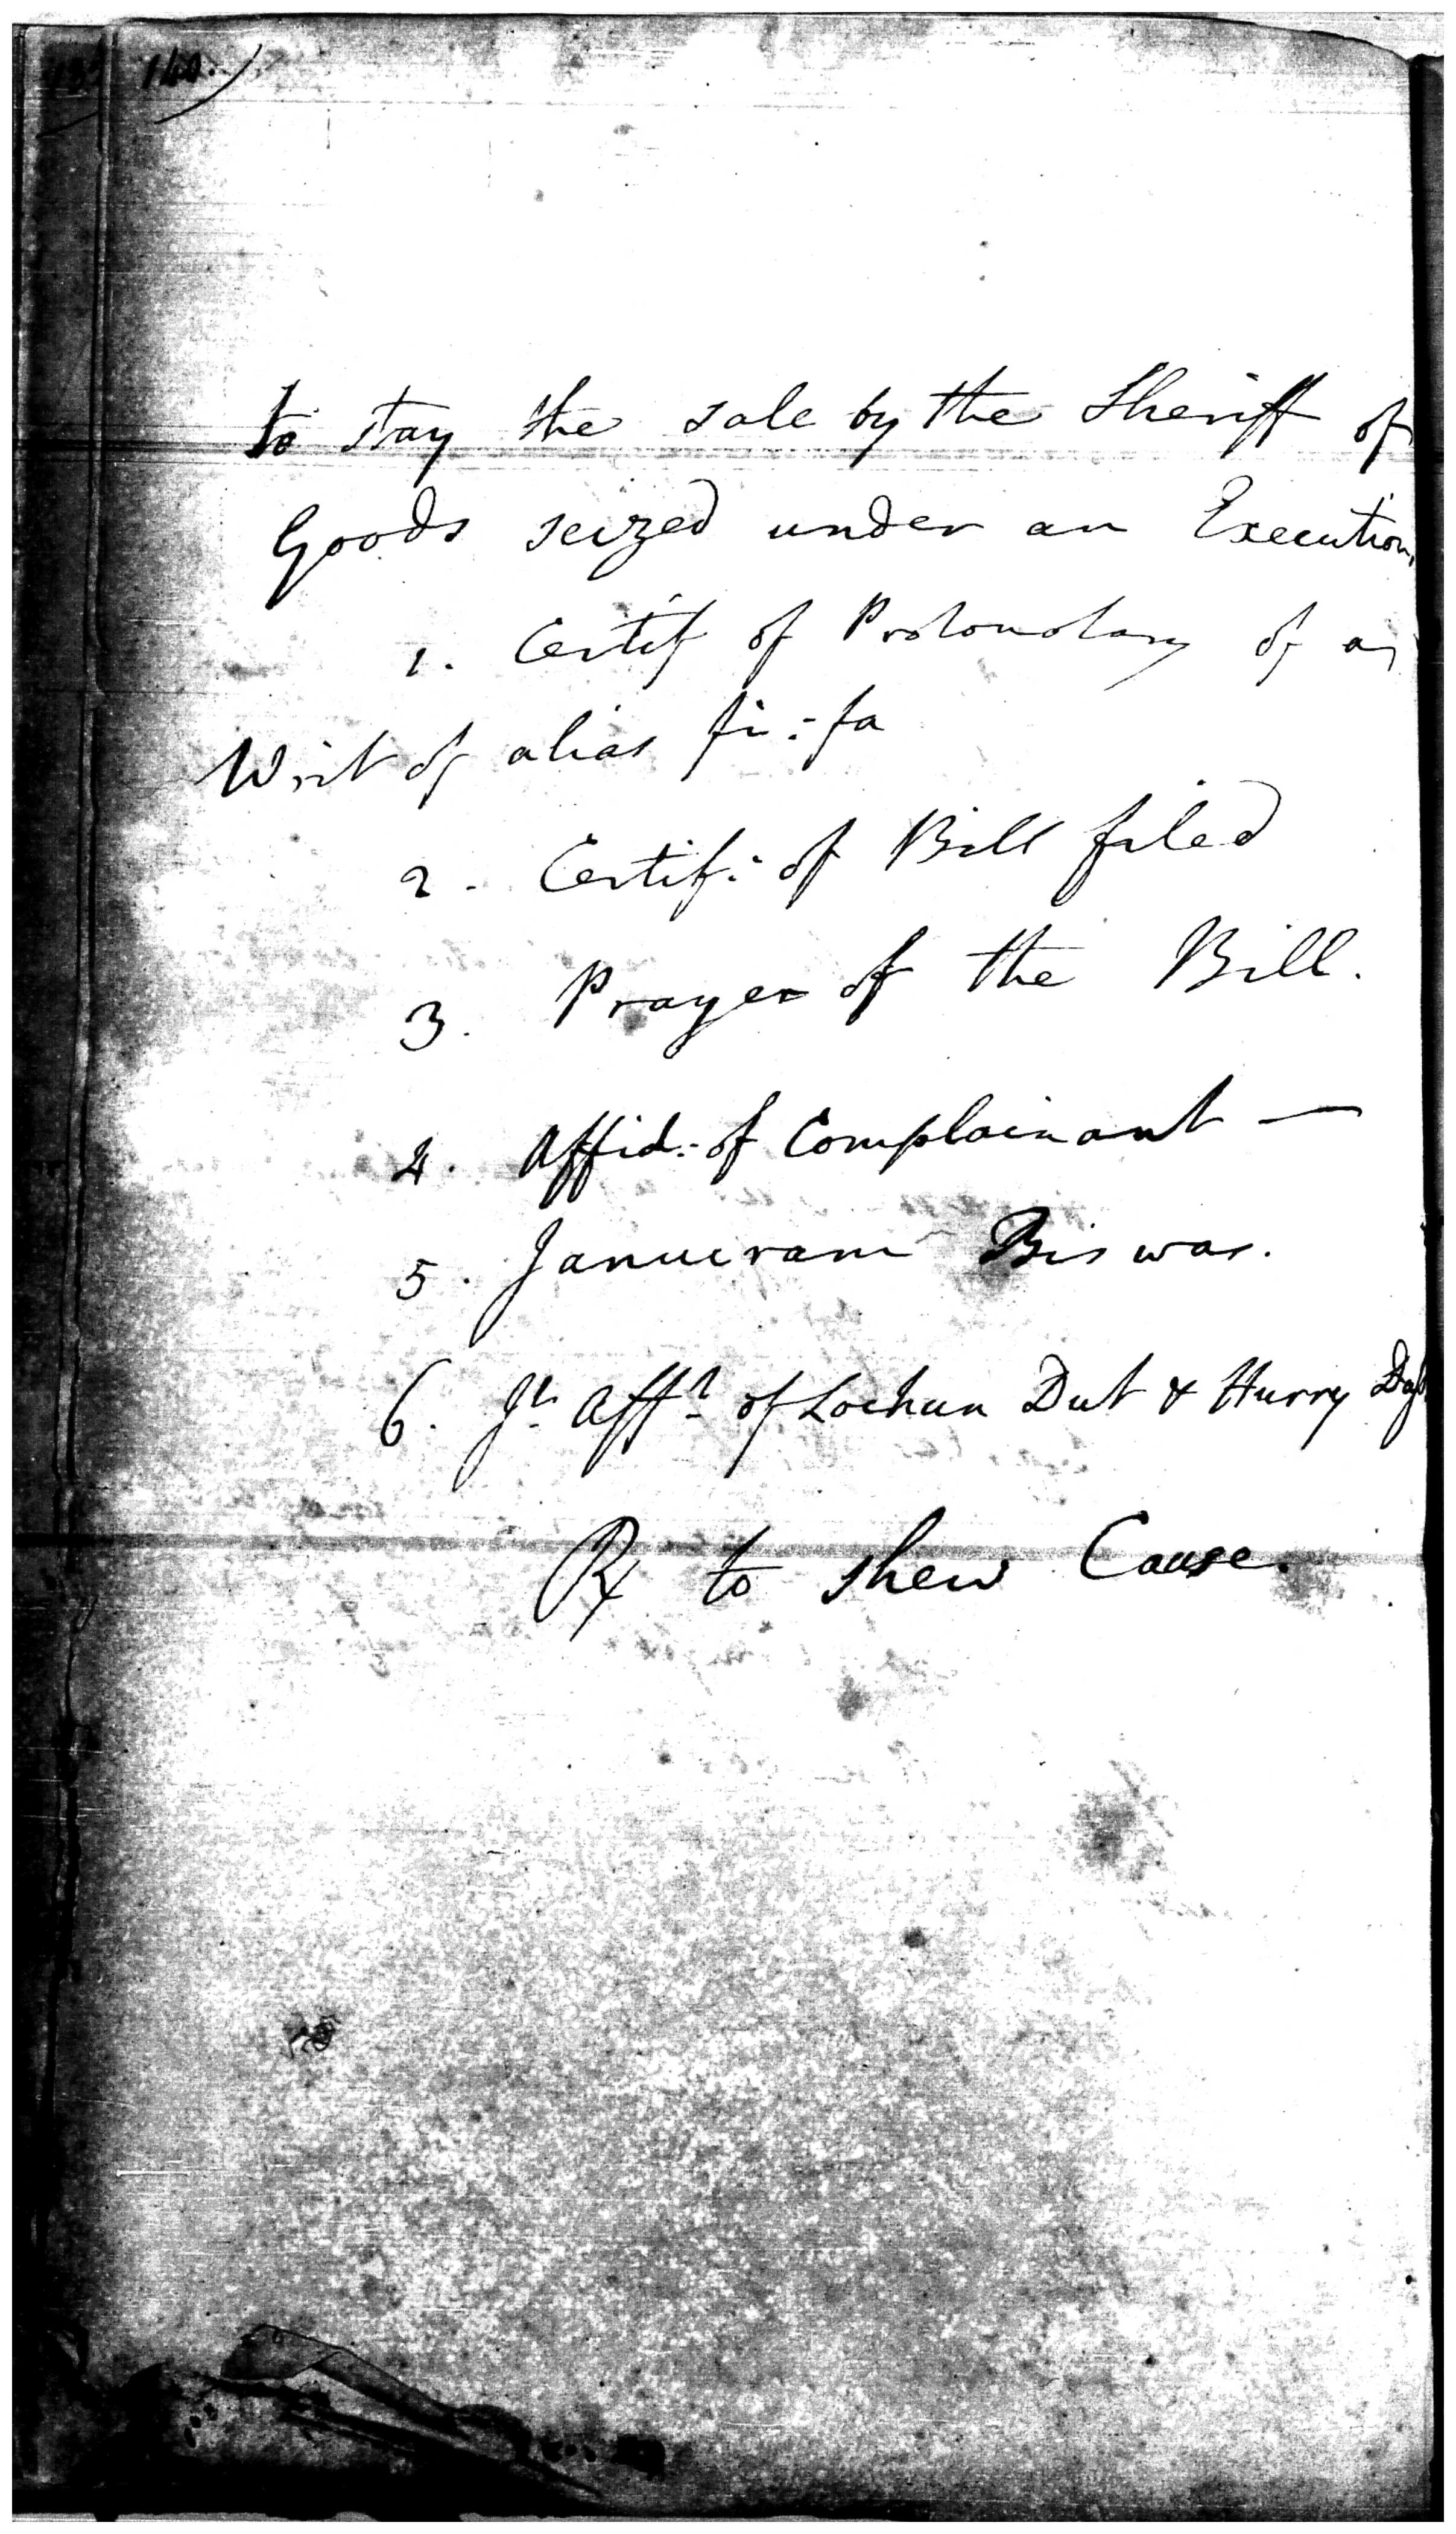 140.
to stay the sale by the Sheriff of
Goods seized under an Execution,
1. Certif of Protonotary of an
Writ of alias fi: fa
2. Certif: of Bill filed
3. Prayer of the Bill.
4. Affid: of Complainant —
5. Biswas.
6. Jt. Afft. of Lochun Dut & Hurry
Rx to shew Cause.